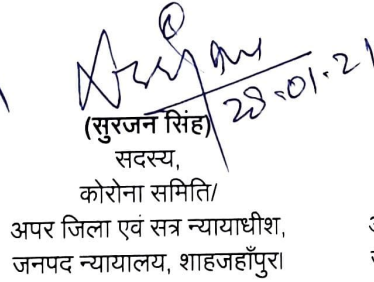 28.01.21
(सुरजन सिंह)
सदस्य,
कोरोना समिति/
अपर जिला एवं सत्र न्यायाधीश,
जनपद न्यायालय, शाहजहाँपुर।